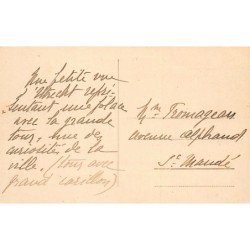 Une petite vue
d'Utrecht représ-
entant une place
avec la grande
tour, une des
curiosités de la
ville. (tour avec
grand carillon).
Mme Fromageau
avenue Alphand
St Mandé